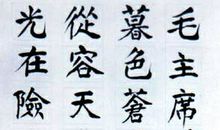 毛主席
暮色蒼
從容天
光在險